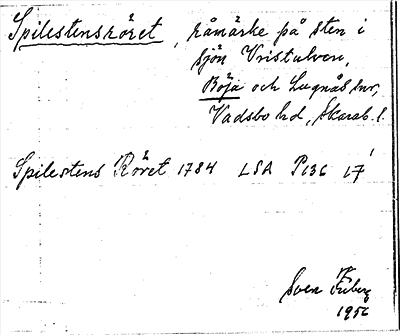 Spilestensröret, råmärke på sten i
sjön Vristulven,
Böja och Lugnås snr,
Vadsbo hd, Skarab. l.
Spilestens Röret 1784 LSA P136 17¹
Sven Friberg
1956